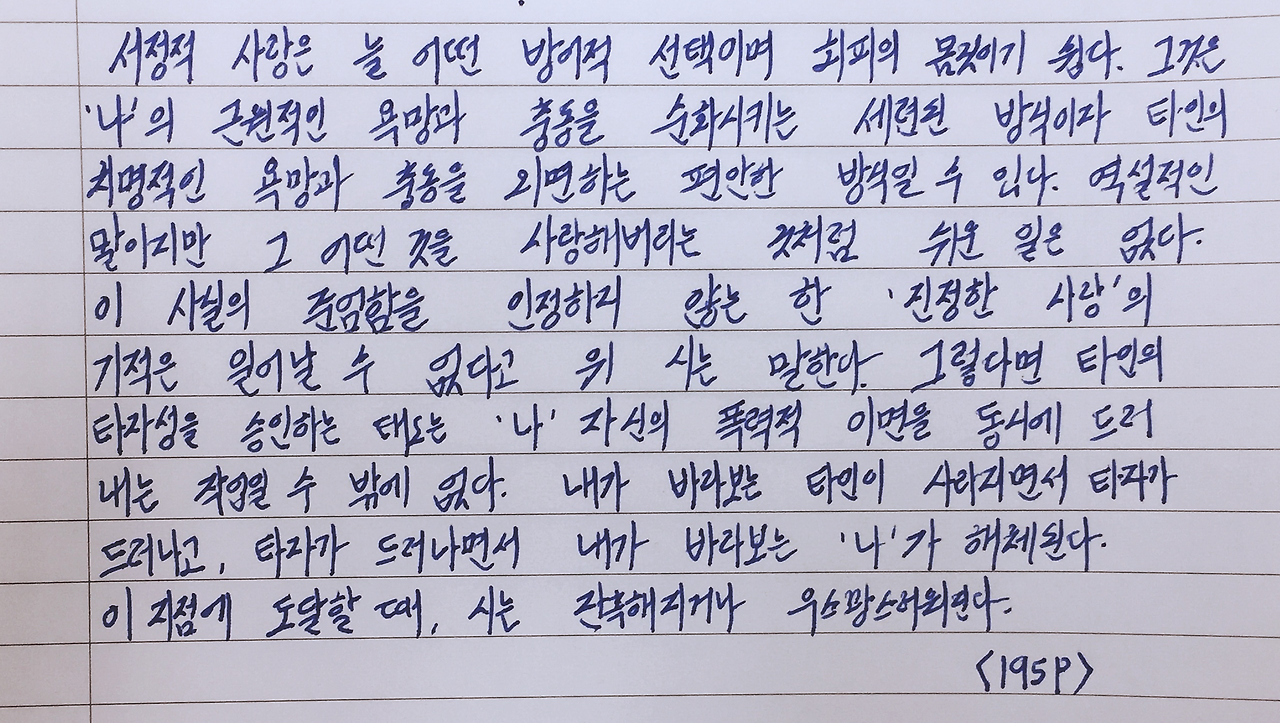 서정적 사랑은 늘 어떤 방어적 선택이며 회피의 몸짓이기 쉽다. 그것은
'나'의 근원적인 욕망과 충동을 순화시키는 세련된 방식이자 타인의
치명적인 욕망과 충동을 외면하는 편안한 방식일 수 있다. 역설적인
말이지만 그 어떤 것을 사랑해버리는 것처럼 쉬운 일은 없다.
이 사실의 준엄함을 인정하지 않는 한 '진정한 사랑'의
기적은 일어날 수 없다고 위 시는 말한다. 그렇다면 타인의
타자성을 승인하는 태도는 '나' 자신의 폭력적 이면을 동시에 드러
내는 작업일 수 밖에 없다. 내가 바라보는 타인이 사라지면서 타자가
드러나고, 타자가 드러나면서 내가 바라보는 '나'가 해체된다.
이 지점에 도달할 때, 시는 잔혹해지거나 우스꽝스러워진다.
<195P>